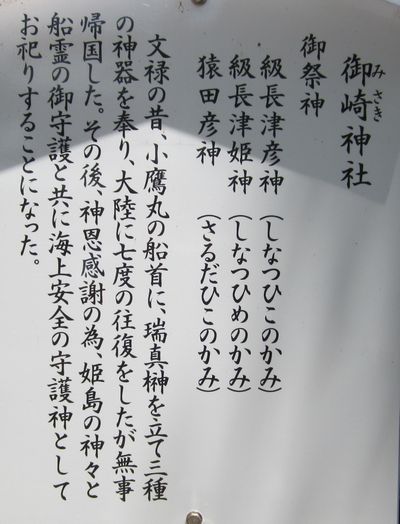 御崎神社
みさき
御祭神
級長津彦神 （しなつひこのかみ）
級長津姫神 （しなつひめのかみ）
猿田彦神 （さるだひこのかみ）
文禄の昔、小鷹丸の船首に、瑞真榊を立て三種
の神器を奉り、大陸に七度の往復をしたが無事
帰国した。その後、神恩感謝の為、姫島の神々と
船霊の御守護と共に海上安全の守護神として
お祀りすることになった。